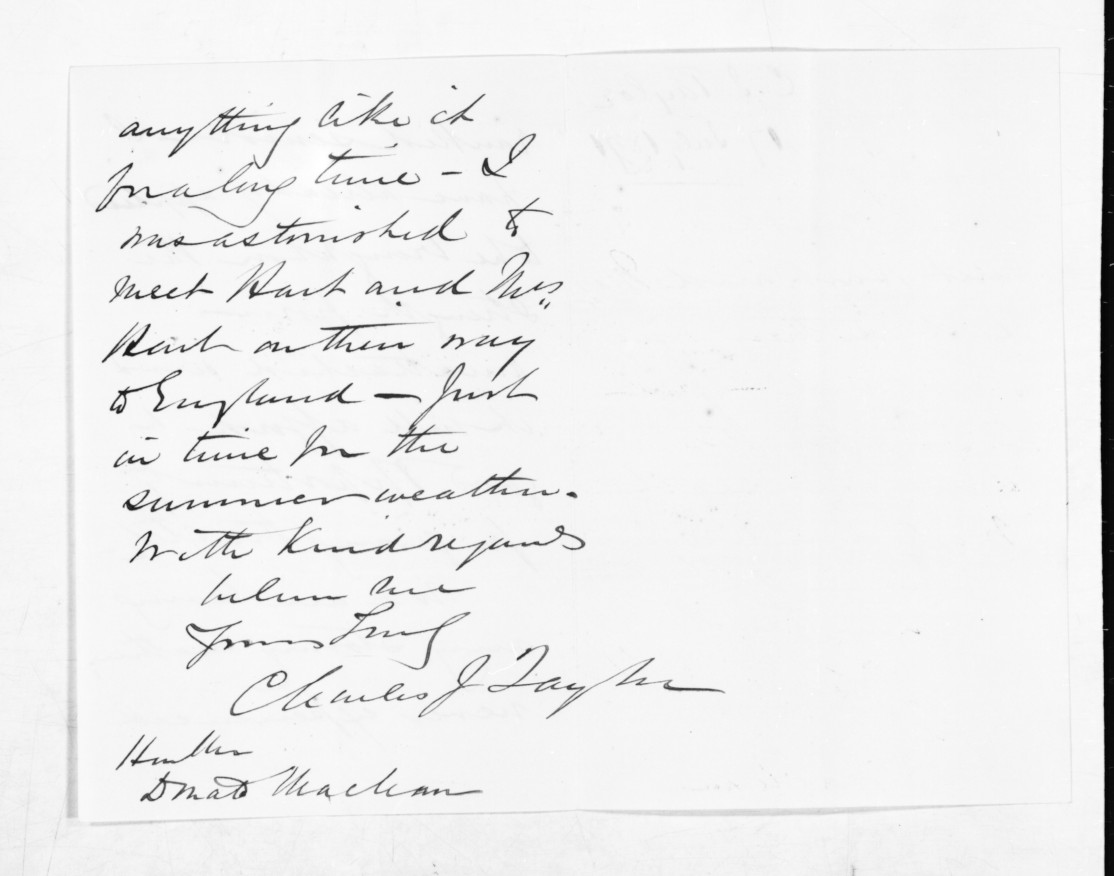 anything like it
for a long time - I
was astonished to
meet Hart and Mrs
Hart on their way
to England - Just
in time for the
summer weather.
With Kind regards
believe me
Yours Truly
Charles J Taylor
Donald Maclean